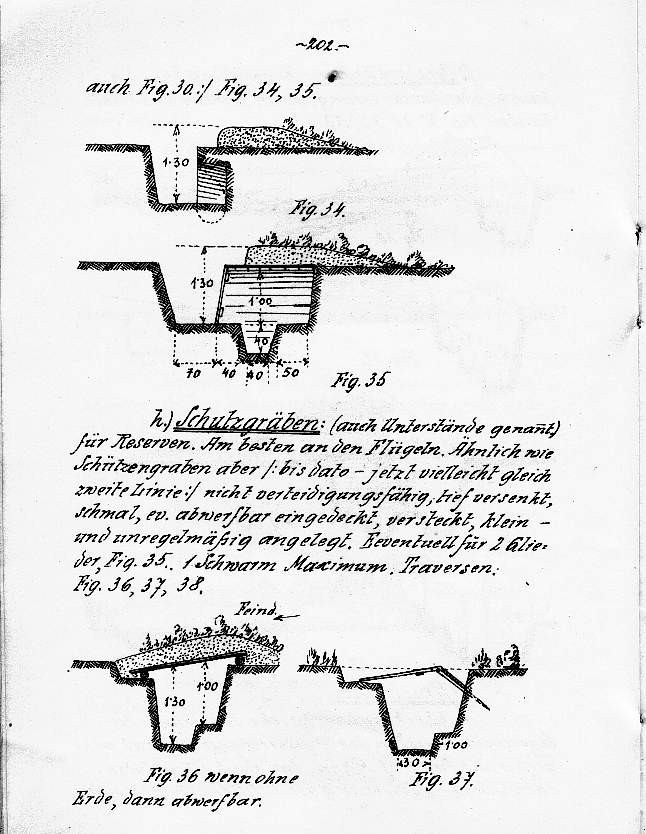 ~202.~
auch Fig. 30:/ Fig. 34, 35.
1·30
Fig. 34.
1·30
1·00
40
70 40 40 50
Fig. 35
h.) Schutzgräben: (auch Unterstände genañt)
für Reserven. Am besten an den Flügeln. Ähnlich wie
Schützengraben aber /: bis dato – jetzt vielleicht gleich
zweite Linie:/ nicht verteidigungsfähig, tief versenkt,
schmal, ev. abwerfbar eingedeckt, versteckt, klein –
und unregelmäßig angelegt. Eeventuell für 2 Glie=
der, Fig. 35.. 1 Schwarm Maximum. Traversen:
Fig. 36, 37, 38.
Feind.
1·30
1·00
1·00
30
Fig. 36 wenn ohne
Erde, dann abwerfbar.
Fig. 37.